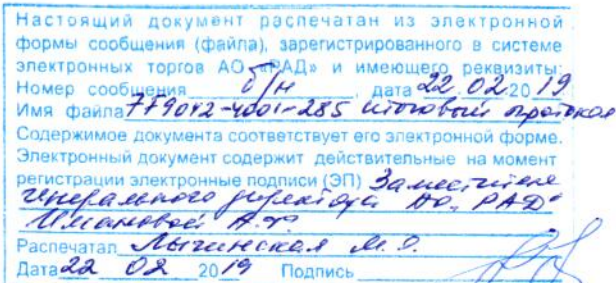 Настоящий документ распечатан из электронной
формы сообщения (файла), зарегистрированного в системе
электронных торгов АО «РАД» и имеющего реквизиты:
Номер сообщения б/н , дата 22.02.2019
Имя файла 779042-4001-285 итоговый протокол
Содержимое документа соответствует его электронной форме.
Электронный документ содержит действительные на момент
регистрации электронные подписи (ЭП) Заместителя
генерального директора АО "РАД"
Имановой А.Ф.
Распечатал Лычинская М.О.
Дата 22 02 2019 Подпись